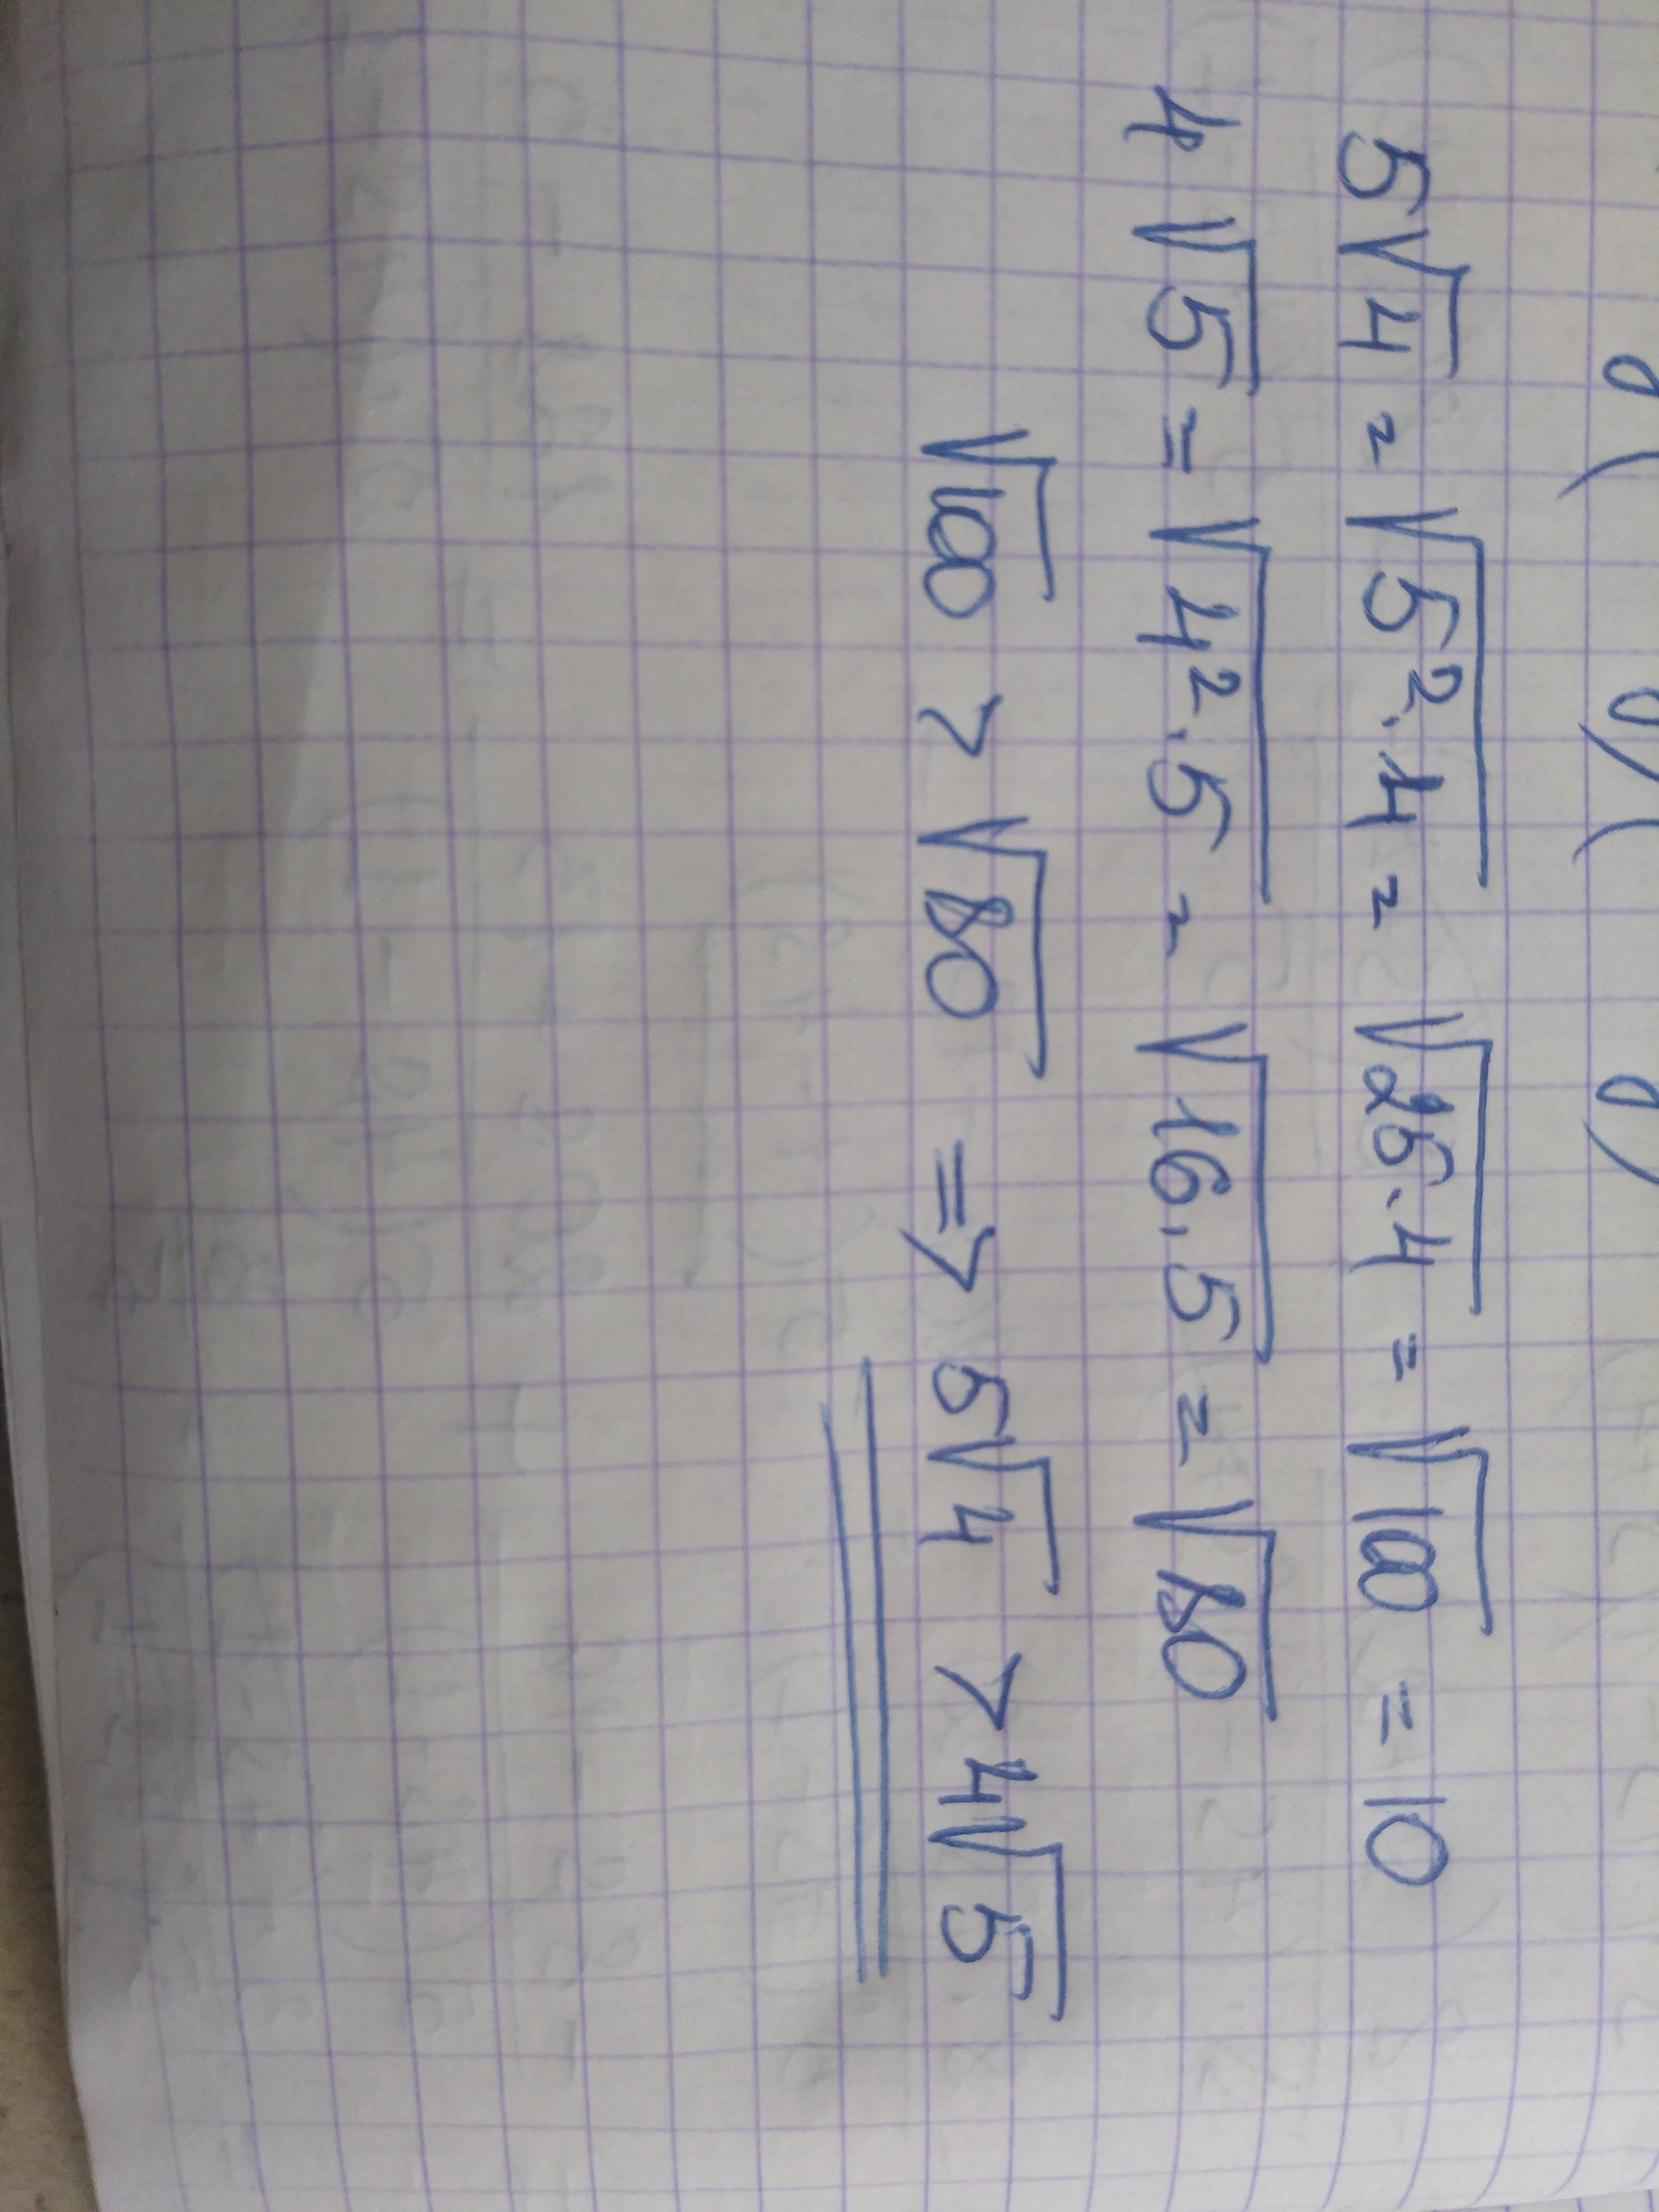 5√4 = √5².4 = √25.4 = √100 = 10
4√5 = √4².5 = √16.5 = √80
√100 > √80 => 5√4 > 4√5